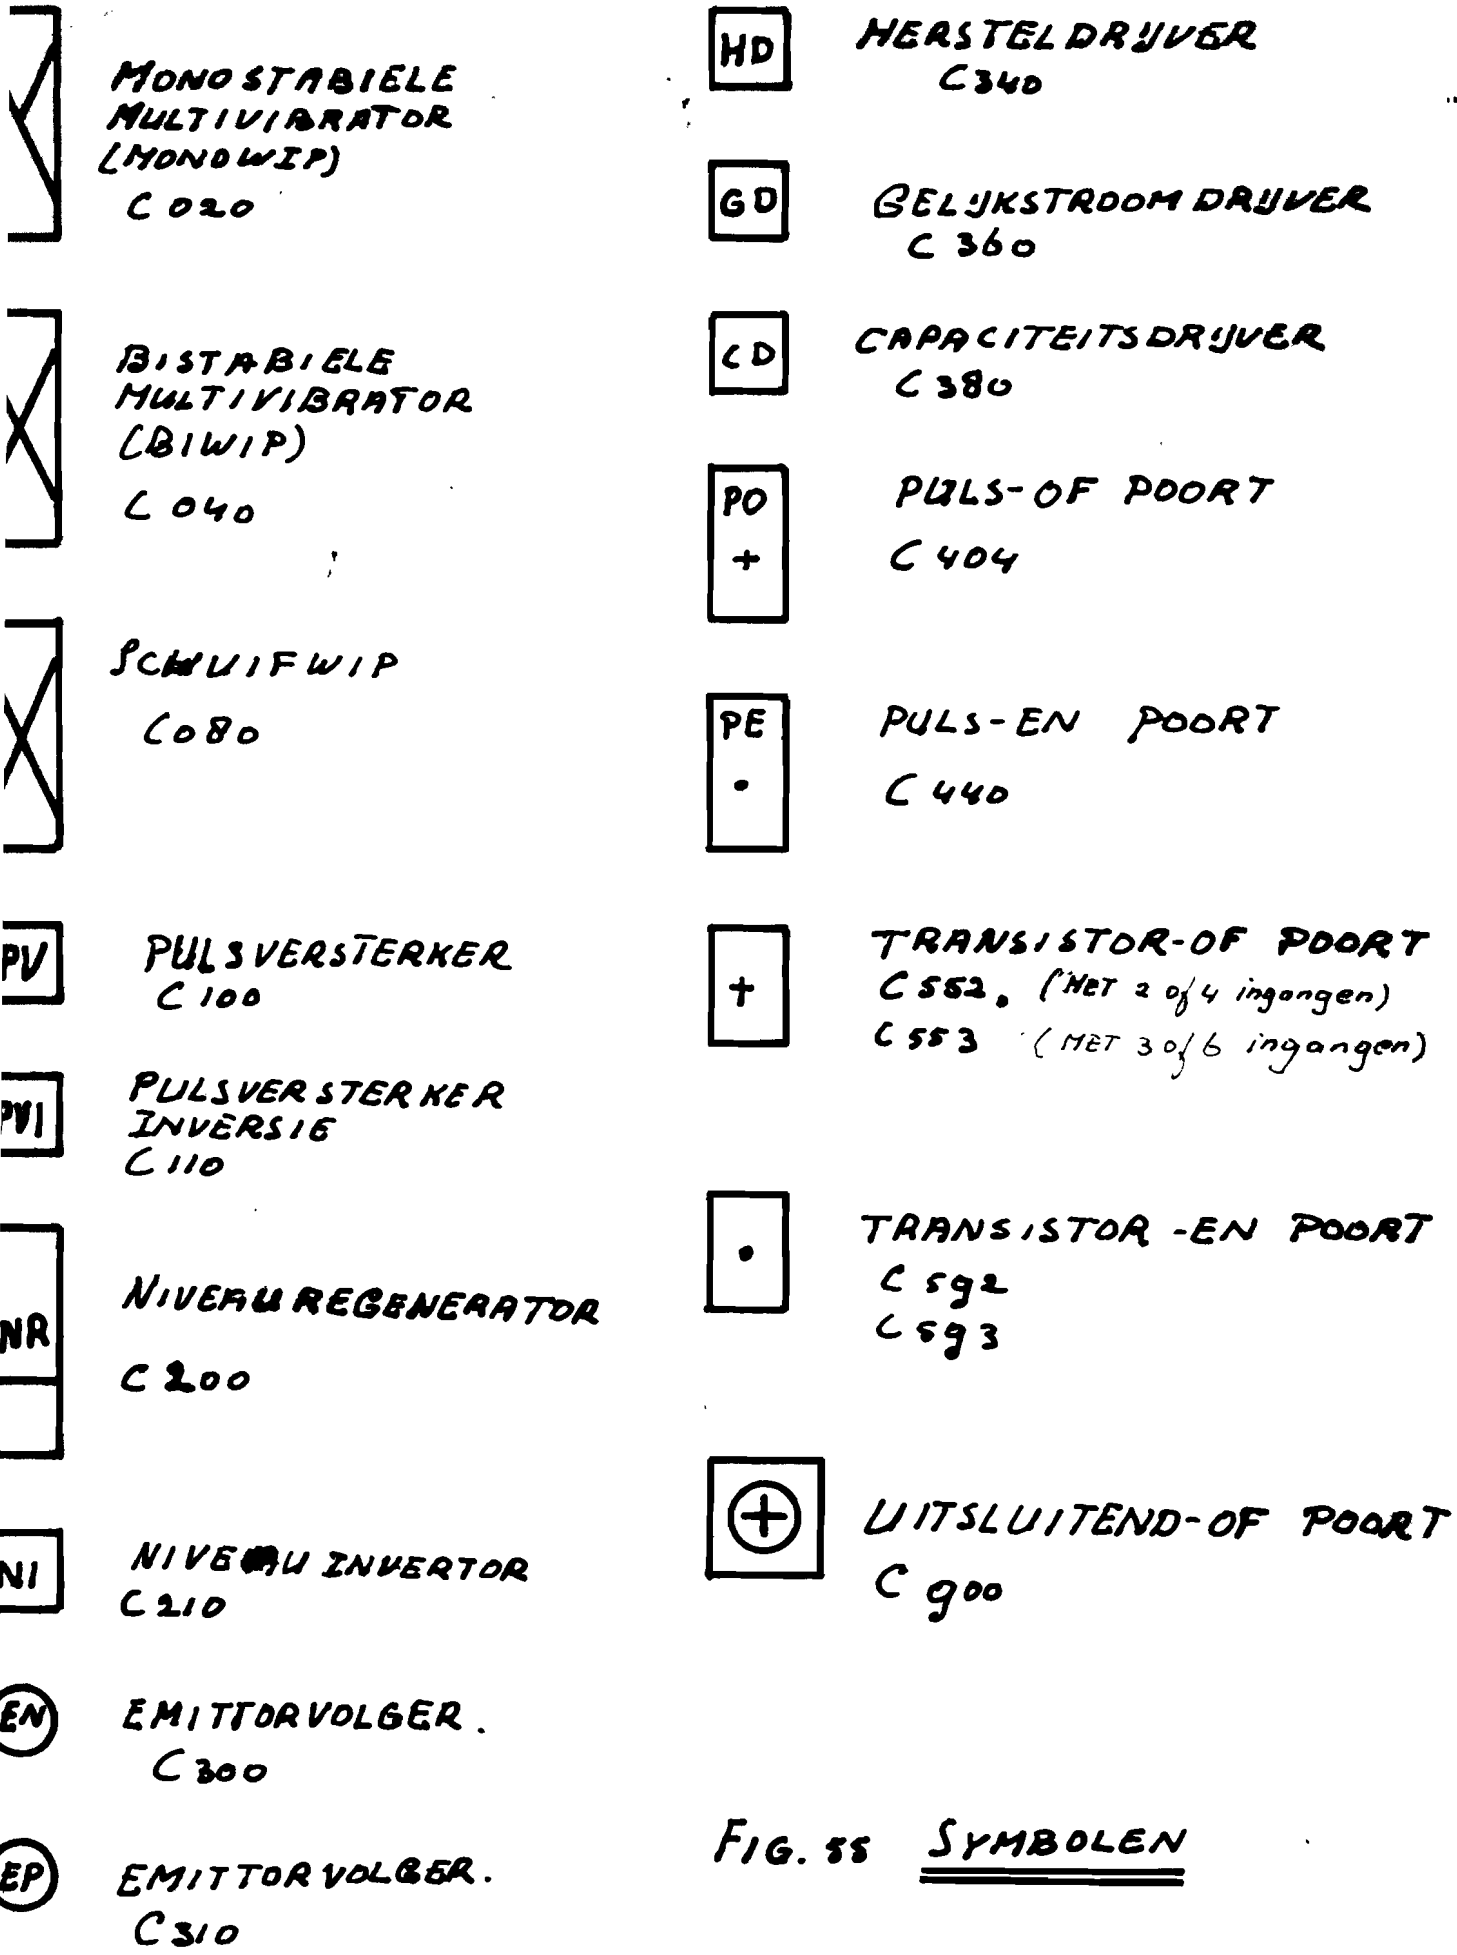 MONOSTABIELE
MULTIVIBRATOR
(MONOWIP)
C 020
BISTABIELE
MULTIVIBRATOR
(BIWIP)
C 040
SCHUIFWIP
C080
PV
PULSVERSTERKER
C 100
PVI
PULSVERSTERKER
INVERSIE
C 110
NR
NIVEAUREGENERATOR
C 200
NI
NIVEAU INVERTOR
C 210
EN
EMITTORVOLGER.
C 300
EP
EMITTORVOLGER.
C 310
HD
HERSTELDRIJVER
C 340
GD
GELIJKSTROOM DRIJVER
C 360
CD
CAPACITEITSDRIJVER
C 380
PO
+
PULS-OF POORT
C 404
PE
•
PULS-EN POORT
C 440
+
TRANSISTOR-OF POORT
C 552. (MET 2 of 4 ingangen)
C 553 (MET 3 of 6 ingangen)
•
TRANSISTOR -EN POORT
C 592
C 593
+
UITSLUITEND-OF POORT
C 900
FIG. 55 SYMBOLEN